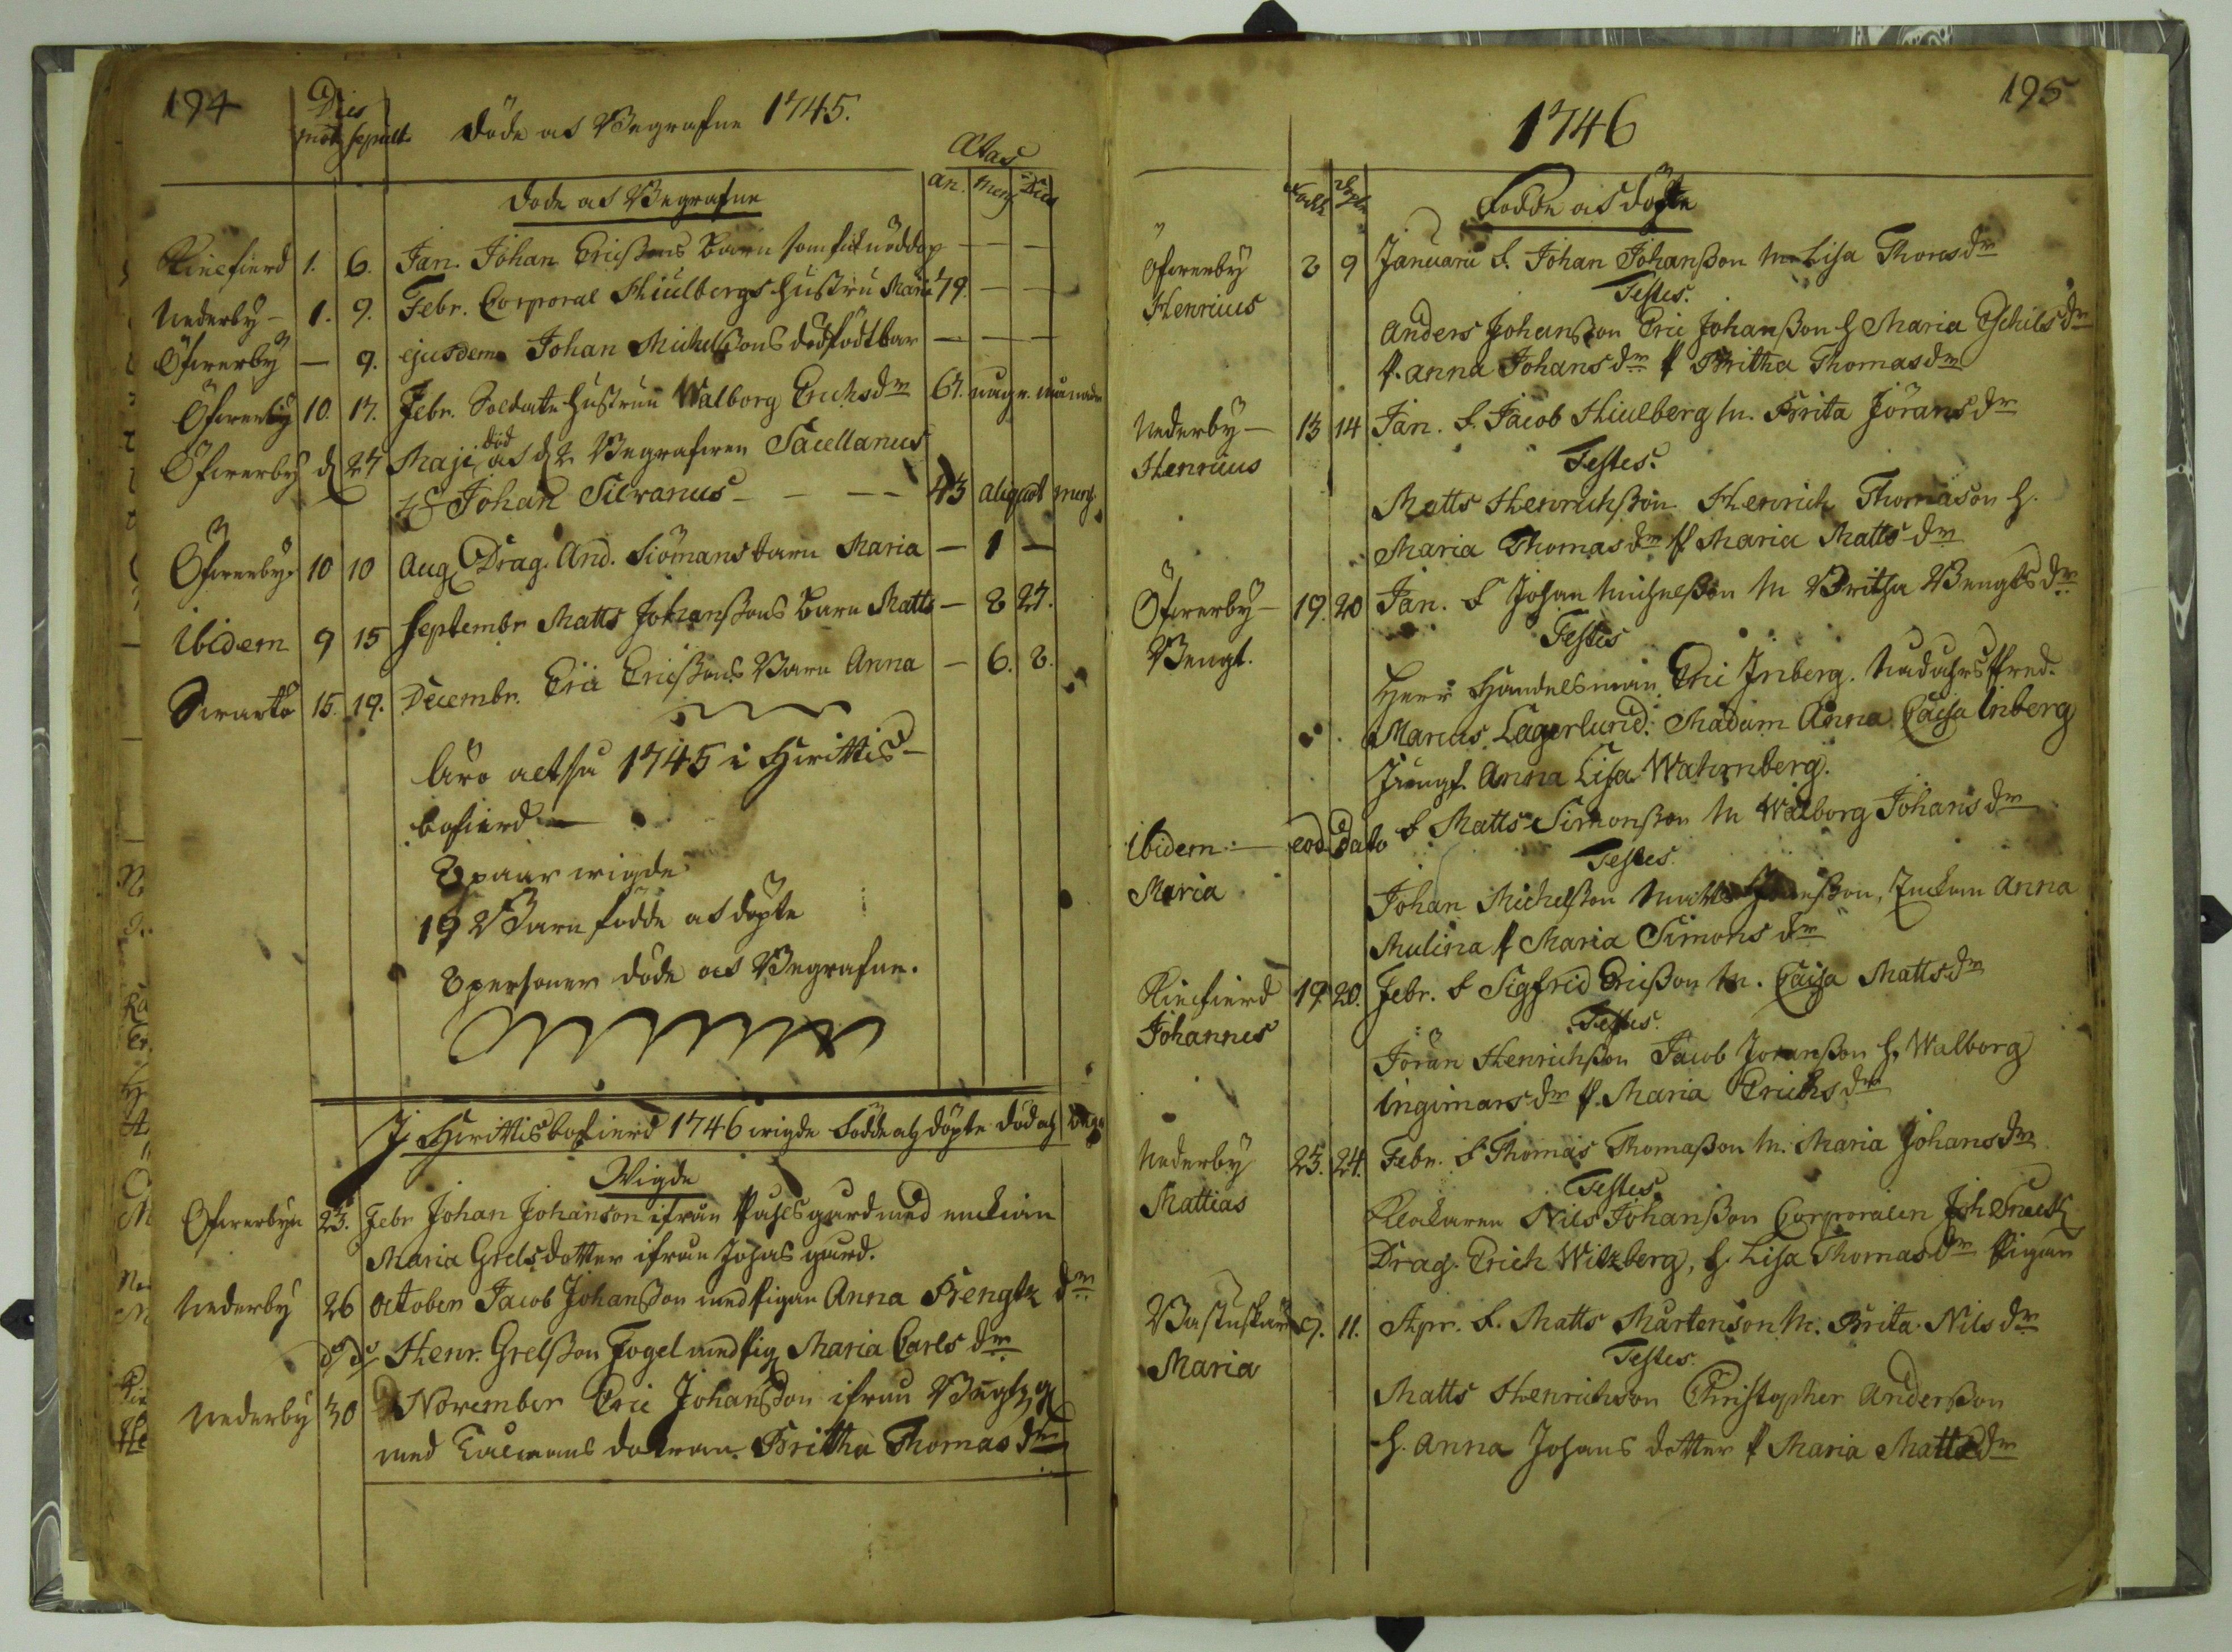 194
Dies
mort sepult.
Döde och Begrafne 1745.
Ætas
an. mens. Dies
Döde och Begrafne
Kirckfierd 1. 6. Jan. Johan Ericßons Barn som fick nöddop — — —
Nederby — 1. 9. Febr. Corporal Skiulbergs Hustru Maria 79. — —
Öfwerby — 9. ejusdem Johan Michelßons dödfödt bar — — —
Öfwerby 10. 17. Febr. Soldate Hustrun Walborg Erichsdr 67. någr. månader
Öfwerby 27 Maji död och Begrafwen Sacellanus
Johan Silvanus — — — 43 aliquot mens.
Öfwerby 10 10 Aug. Drag. And. Siömans barn Maria — 1 —
Ibidem 9 15 Septembr Matts Johanßons Barn Matts — 8 27.
Swartö 15. 19. Decembr. Eric Ericßons Barn Anna — 6. 8.
Äro altså 1745 i Hirittis-
bofierd —
8 paar wigde
19 Barn födde och döpte
8 personer döde och Begrafne.
I Hirittisbofierd 1746 wigde födde och döpte död och begr
Wigde
Öfwerbyn 23. Febr Johan Johanson ifrån Påhlsgård med enckian
Maria Grelsdotter ifrån Johans gård.
Nederby 26 October Jacob Johanßon med Pigan Anna Bengtz dr
do do Henr. Grelßon Fogel med Pig. Maria Carls dr
Nederby 30 November Eric Johanßon ifrån Bengtz g
med dotran Britha Thomas dr
195
1746
Födde och döpte
Öfwerby 8 9 Januarii F. Johan Johanßon M. Lisa Thomsdr
Henricus
Testes.
Anders Johanßon Eric Johanßon H Maria Eschilsdr
P. Anna Johansdr P Britha Thomasdr
Nederby — 13 14 Jan. F. Jacob Skiulberg M. Brita Jöransdr
Henricus
Testes.
Matts Henrichßon Henrich Thomason H.
Maria Thomasdr P Maria Mattsdr
Öfwerby — 19. 20 Jan. F Johan Michelßon M Britha Bengtsdr
Bengt.
Testes
Herr Handelsman Eric Inberg.
Marcus Lagerlund. Madam Anna Caisa Inberg
Jungf. Anna Lisa Wahrnberg.
Ibidem — eod dato F Matts Simonßon M Walborg Johansdr
Maria
Testes.
Johan Michelßon Matts Enckan Anna
Mulina P Maria Simonsdr
Kirckfierd 19. 20. Febr. F Sigfrid Ericßon M. Caisa Mattsdr
Johannes
Testes.
Jöran Henrichßon Jacob Joranßon H. Walborg
Ingimarsdr P. Maria Erichsdr
Nederby 23. 24. Febr. F Thomas Thomaßon M. Maria Johansdr
Mattias
Testes.
Klockaren Nils Johanßon Corporalen Joh
Drag. Erich Witzberg, H. Lisa Thomasdr Pigan
9. 11. Apr. F. Matts Mårtenson M. Brita Nilsdr
Maria
Testes.
Matts Henrichson Christopher Anderßon
H. Anna Johans dotter P Maria Mattsdr